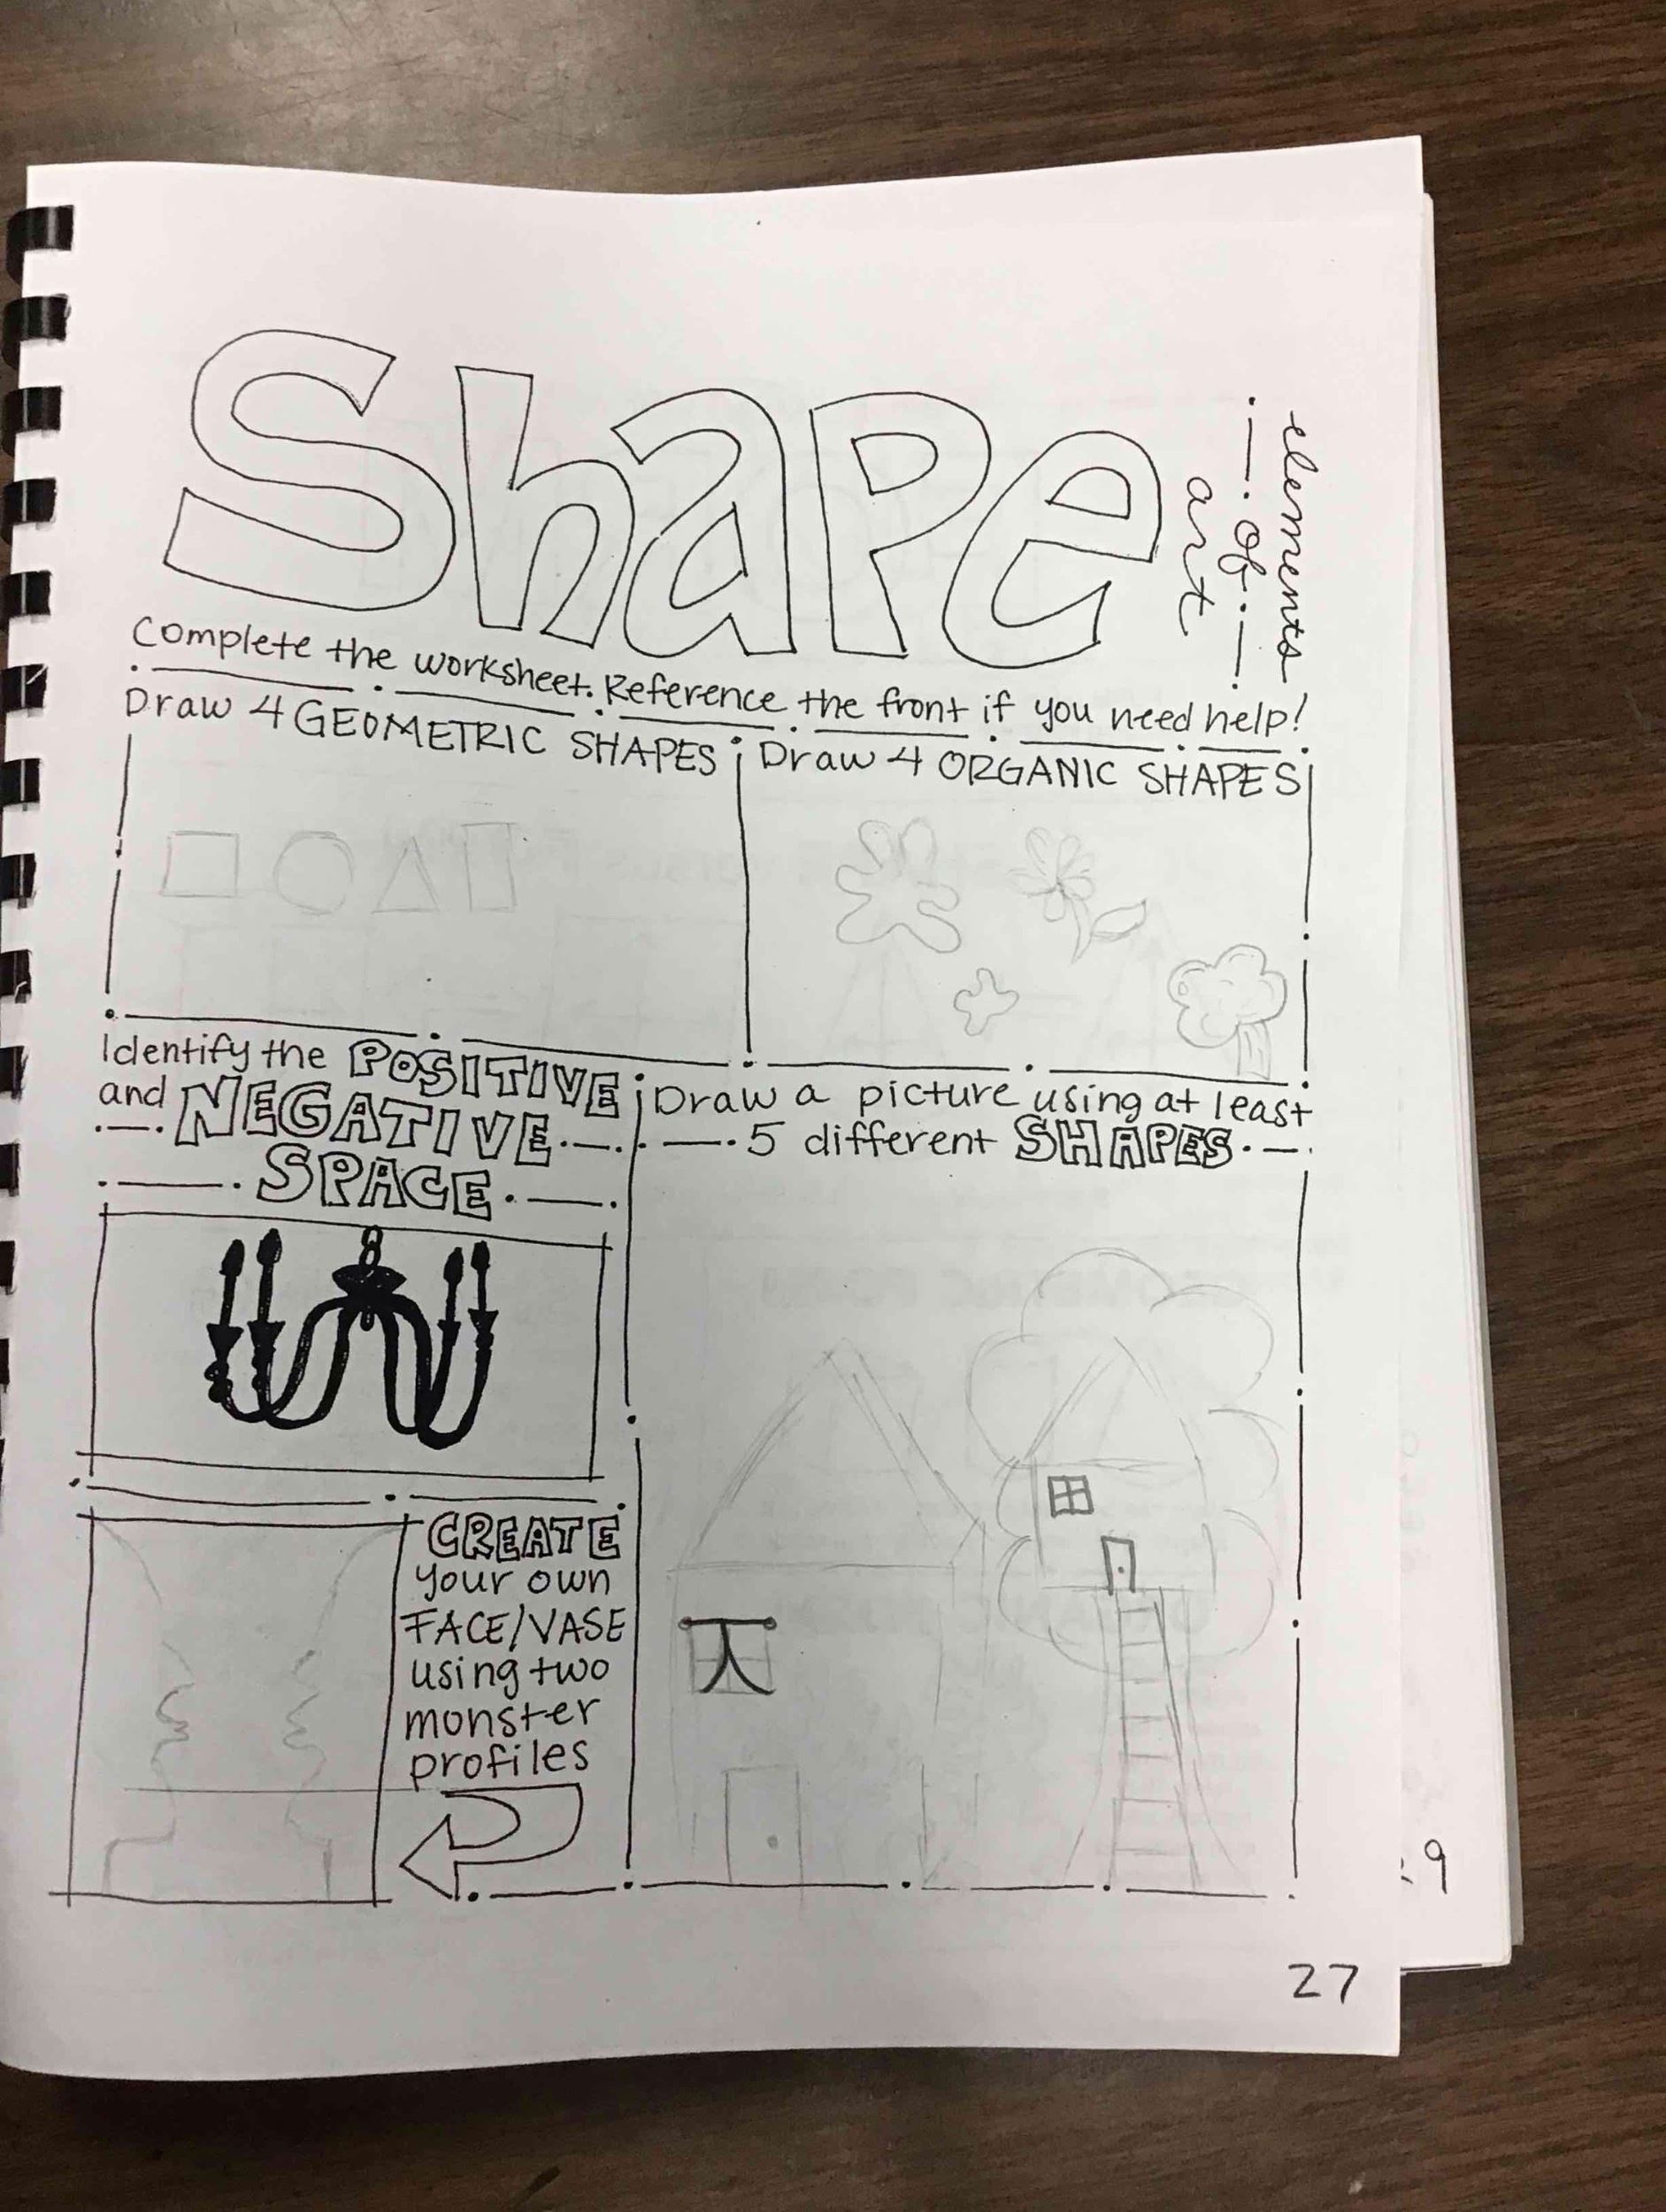 Shape
elements
of
art
Complete the worksheet. Reference the front if you need help!
Draw 4 GEOMETRIC SHAPES
Draw 4 ORGANIC SHAPES
Identify the POSITIVE
and NEGATIVE
SPACE
Draw a picture using at least
5 different SHAPES
CREATE
your own
FACE/VASE
using two
monster
profiles
27